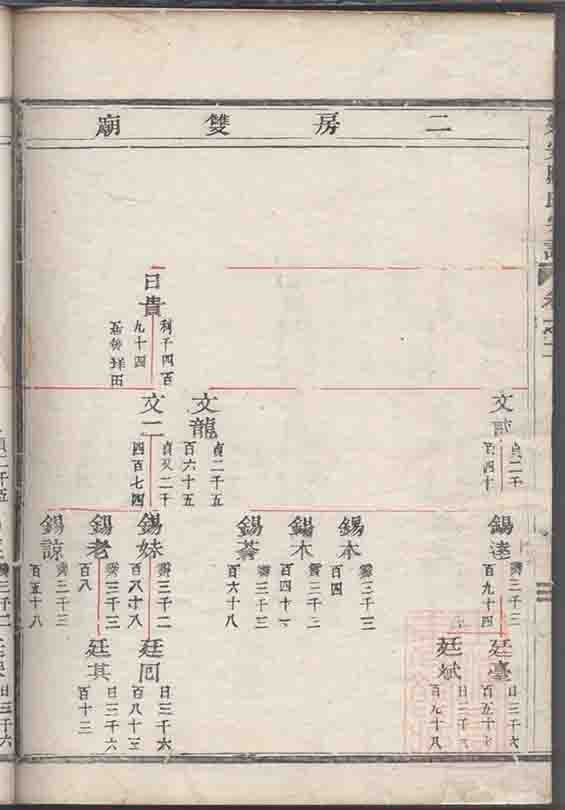 二房雙廟
日貴
利千四百
九十四
文
貞二千
百四十
文龍
貞二千五
百六十五
文二
貞又二千
四百七四
錫達
霽三千三
百九十四
錫本
霽三千三
百四
錫木
霽三千三
百四十
錫蒼
霽三千三
百六十八
錫妹
霽三千二
百八十八
錫老
霽三千三
百八
錫諒
霽三千三
百五十八
廷臺
日三千六
百五十
廷斌
日三千六
百九十八
廷回
日三千六
百八十三
廷其
日三千六
百十三